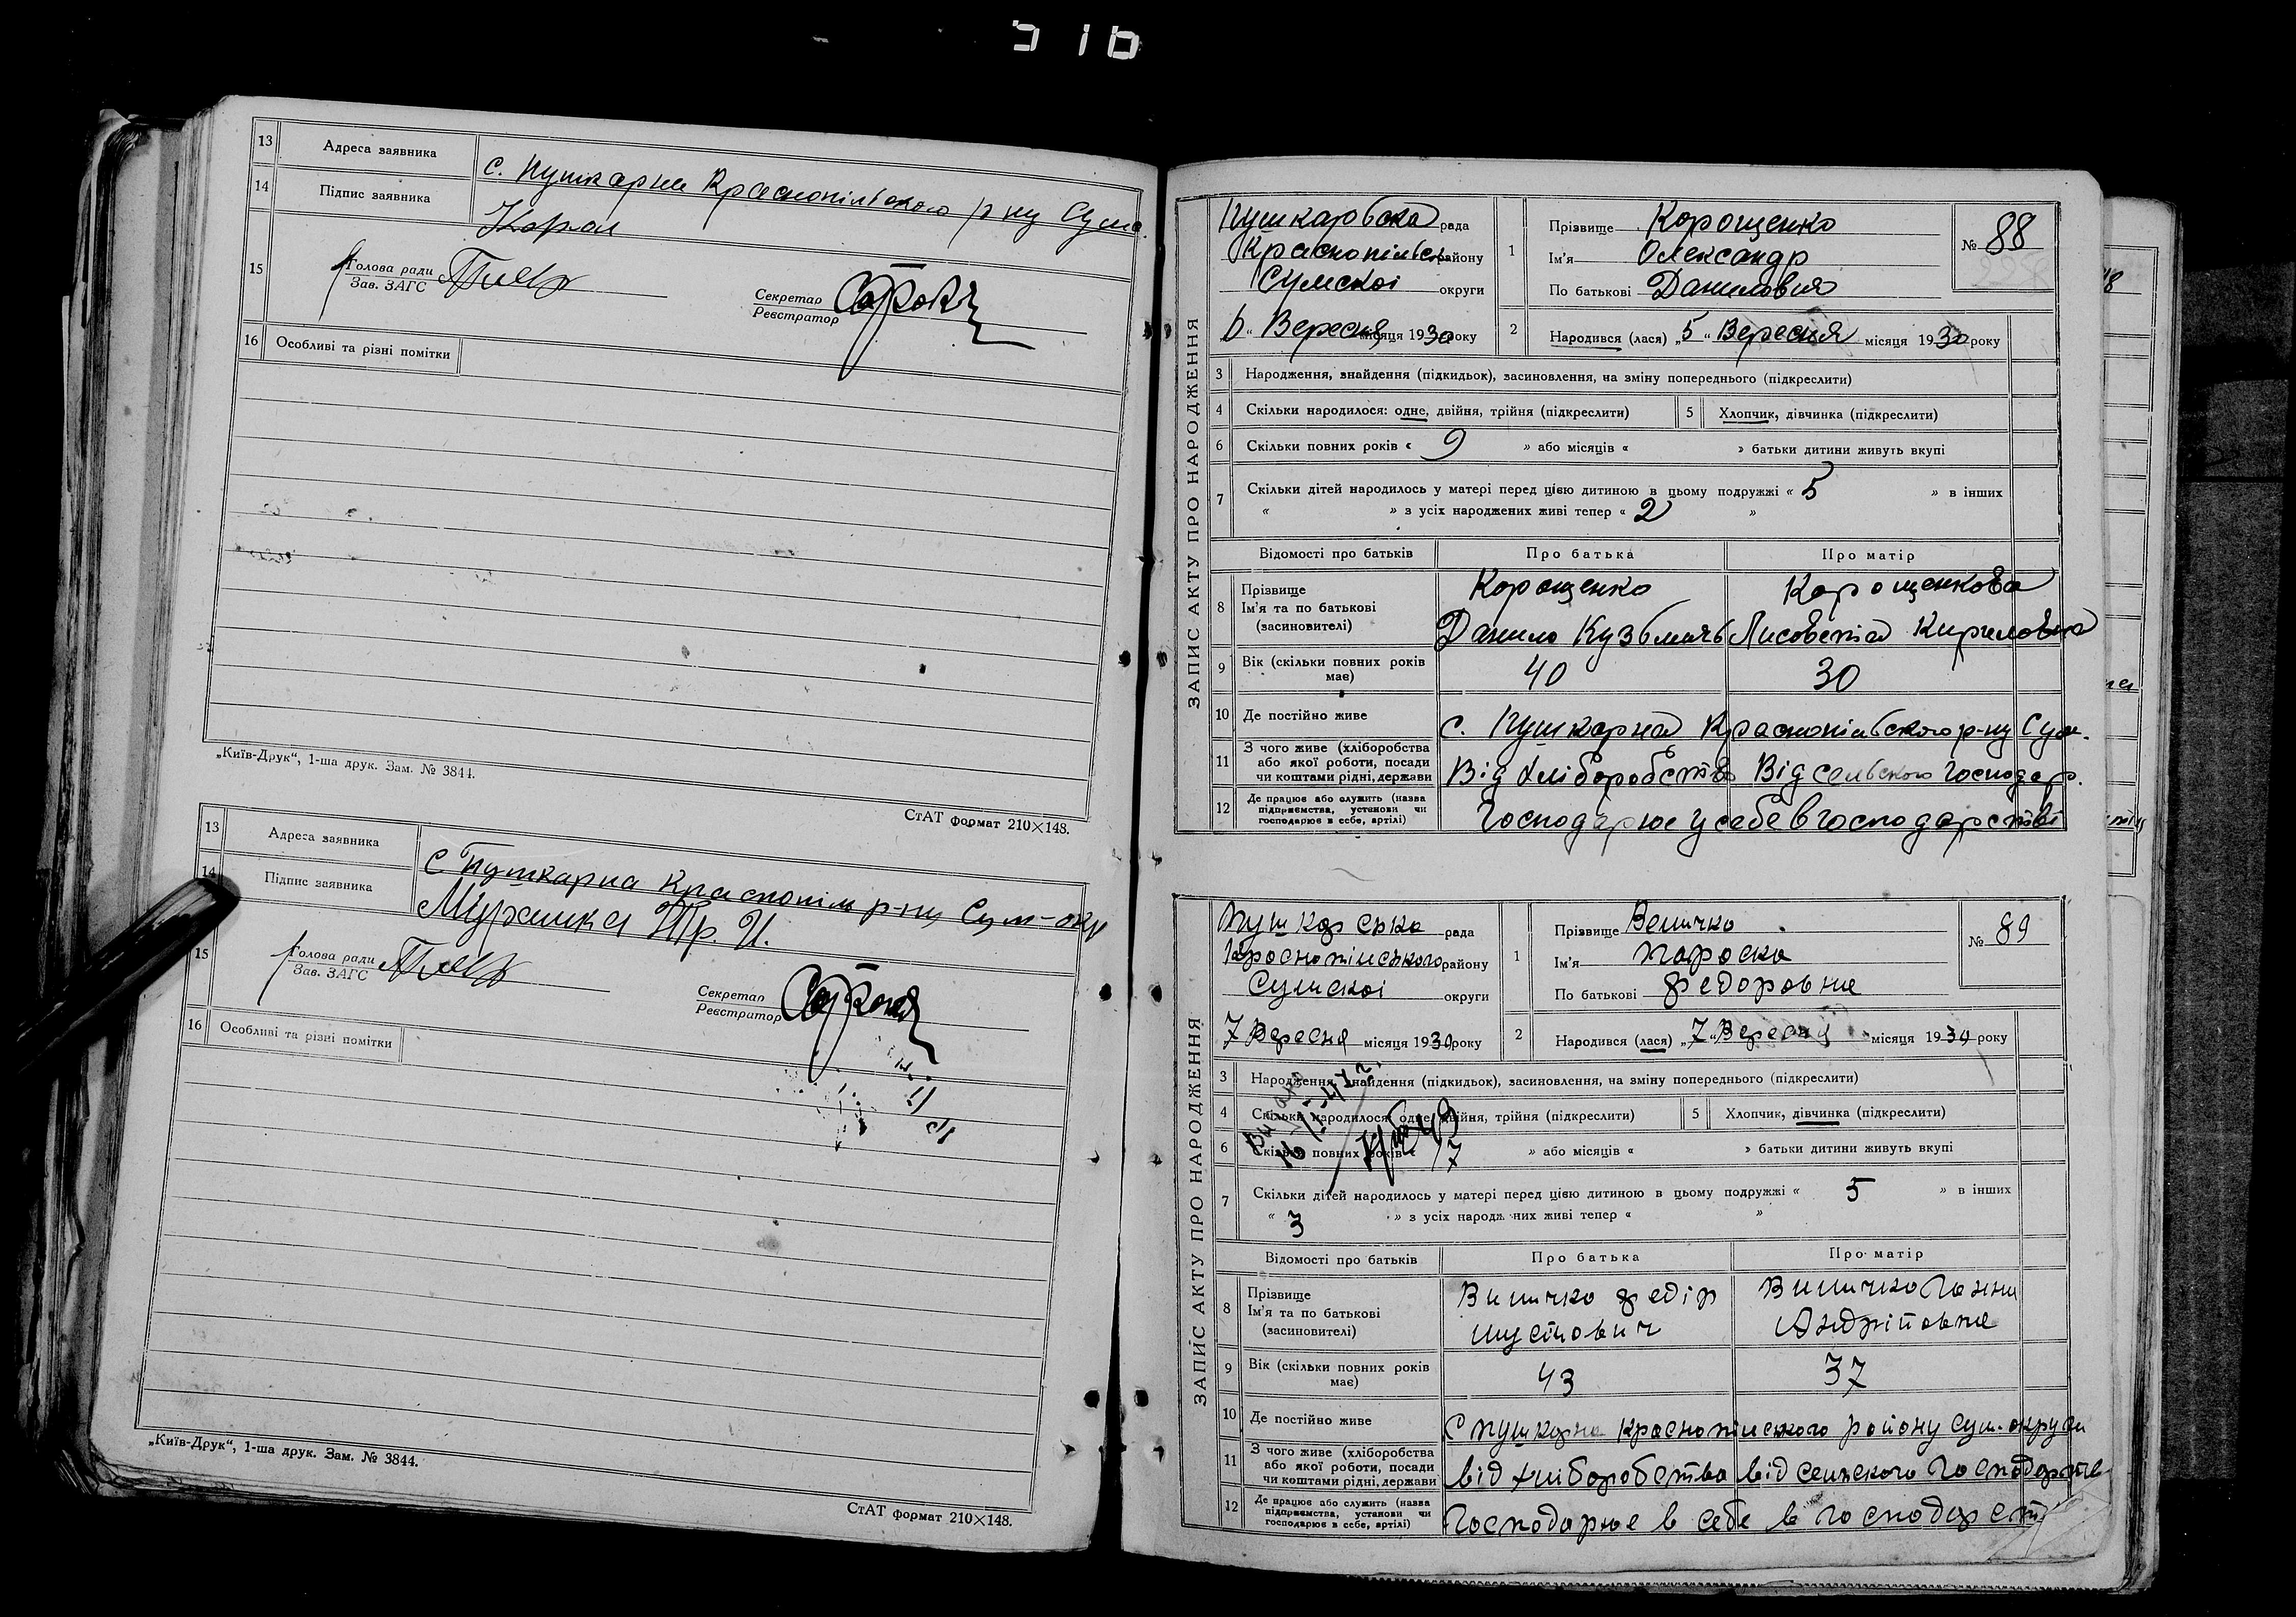 316
13 Адреса заявника с. Пушкарне Краснопільского р ну Сум.
14 Підпис заявника
15 Голова ради
Зав. ЗАГС
Секретар
Реєстратор
16 Особливі та різні помітки
„Київ-Друк“, 1-ша друк. Зам. № 3844.
СтАТ формат 210×148.
13 Адреса заявника с Пушкарна Краснопіль р-ну Сум-окр
14 Підпис заявника
15 Голова ради
Зав. ЗАГС
Секретар
Реєстратор
16 Особливі та різні помітки
„Київ-Друк“, 1-ша друк. Зам. № 3844.
СтАТ формат 210×148.
ЗАПИС АКТУ ПРО НАРОДЖЕННЯ
Пушкаровска рада
Краснопільск району
Сумскої округи
6 „ Вересня місяця 1930 року
1 Прізвище Корощенко
Ім'я Олександр
По батькові Данилович
№ 88
2 Народився (лася) „5“ Вересня місяця 1930 року
3 Народження, знайдення (підкидьок), засиновлення, на зміну попереднього (підкреслити)
4 Скільки народилося: одне, двійня, трійня (підкреслити) 5 Хлопчик, дівчинка (підкреслити)
6 Скільки повних років « 9 » або місяців « » батьки дитини живуть вкупі
7 Скільки дітей народилось у матері перед цією дитиною в цьому подружжі « 5 » в інших
« » з усіх народжених живі тепер « 2 »
Відомості про батьків Про батька Про матір
8 Прізвище
Ім'я та по батькові
(засиновителі)
Корощенко Корощенкова
Данило Кузьмичь Лисоветіа Кириловна
9 Вік (скільки повних років має) 40 30
10 Де постійно живе с. Пушкарна Краснопільского р-ну Сум.
11 З чого живе (хліборобства або якої роботи, посади чи коштами рідні, держави Від хліборобства Від сельского господар.
12 Де працює або служить (назва підприємства, установи чи господарює в себе, артілі) Господарює у себе в господарстві
ЗАПИС АКТУ ПРО НАРОДЖЕННЯ
Пушкарська рада
Краснопільського району
Сумскої округи
7 Вересня місяця 1930 року
1 Прізвище Величко
Ім'я Параска
По батькові Федоровне
№ 89
2 Народився (лася) „7“ Вересня місяця 1930 року
3 Народження, знайдення (підкидьок), засиновлення, на зміну попереднього (підкреслити)
4 Скільки народилося: одне, двійня, трійня (підкреслити) 5 Хлопчик, дівчинка (підкреслити)
6 Скільки повних років « 17 » або місяців « » батьки дитини живуть вкупі
7 Скільки дітей народилось у матері перед цією дитиною в цьому подружжі « 5 » в інших
« 3 » з усіх народжених живі тепер « »
Відомості про батьків Про батька Про матір
8 Прізвище
Ім'я та по батькові
(засиновителі)
Виличко Федір Виличко Ганна
Андрііовне
9 Вік (скільки повних років має) 43 37
10 Де постійно живе С Пушкарна Краснопільского району Сум. округи
11 З чого живе (хліборобства або якої роботи, посади чи коштами рідні, держави від хліборобства від сельского господарств
12 Де працює або служить (назва підприємства, установи чи господарює в себе, артілі) Господарює в себе в господарст